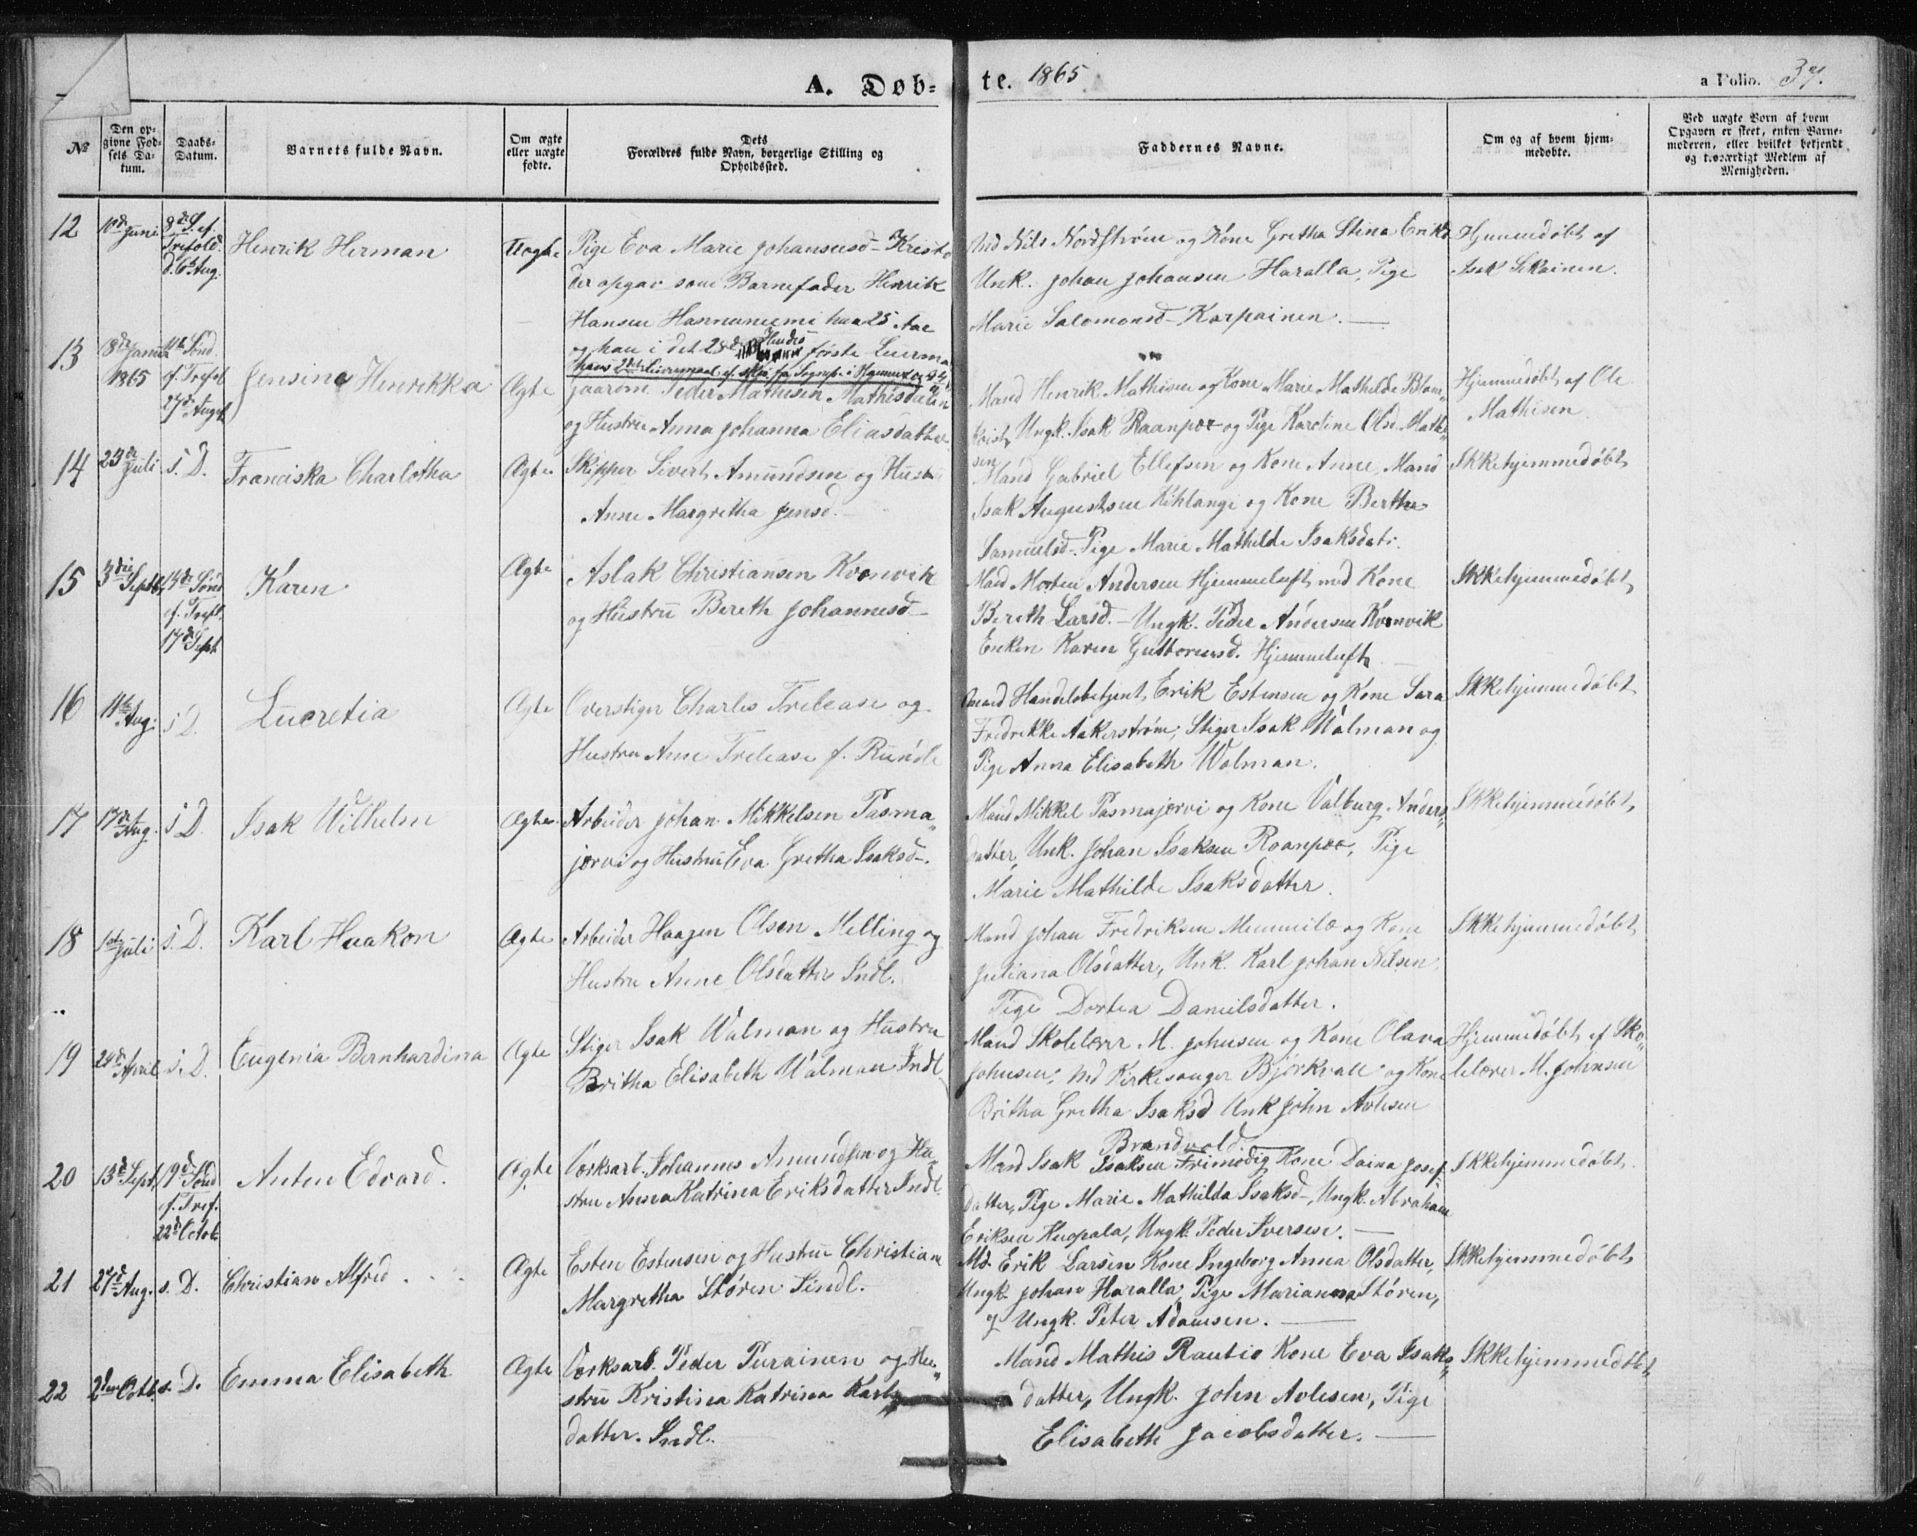 A. Døb-
te. 1865
a Folio. 37.
№
Den opgivne Fødsels Datum.
Daabs-Datum.
Barnets fulde Navn.
Om ægte eller uægte fødte.
Dets Forældres fulde Navn, borgerlige Stilling og Opholdssted.
Faddernes Navne.
Om og af hvem hjemmedøbte.
Ved uægte Børn af hvem Opgaven er skeet, enten Barnemoderen, eller hvilket bekjendt og troværdigt Medlem af Menigheden.
12
Juni
8de S. ef.
Trefold.
d. 6te Aug.
Henrik Herman
Uægte
Pige Eva Marie Johannesd
der opgav som Barnefader Henrik
Hansen
og han i det 28de første
Nils Nordstrøm og Kone Gretha Stina
Unk. Johan Johansen Haralla, Pige
Marie Salomonsd. Karpainen.
Hjemmedøbt af
Isak
13
8de
1865
ef. Trefol.
27de August
Jensine Henrikka
Ægte
Peder Mathisen
og Hustru Anna Johanna Eliasdatter
Mand Henrik Mathisen og Kone Marie Mathilde
Ungk. Isak Raanpær og Pige Karoline Olsd. Mathi-
sen
Hjemmedøbt af Ole
Mathisen.
14
Juli
s. D.
Franciska Charlotha
Ægte
Skipper Sivert Amundsen og Hustr.
Anne Margretha Jensd.
Mand Gabriel Ellefsen og Kone Anne, Mand
Isak Augustsen Kihlangi og Kone Bertha
Samuelsd. Pige Marie Mathilde Isaksdatr.
Ikkehjemmedøbt
15
3die Septb.
ef. Trefl.
17de Sept
Karen
Ægte
Aslak Christiansen Kvænvik
og Hustru Bereth Johannesd
Mand Morten Andersen Hjemmeluft med Kone
Bereth Larsd. Ungk. Peder Andersen Kvænvik
Enken Karen Guttormsd. Hjemmeluft
Ikkehjemmedøbt
16
11te Aug.
s. D.
Lucretia
Ægte
Overstiger Charles Trelease og
Hustru Ann Trelease f. Rundle
Handelsbetjent Erik Estensen og Kone Sara
Fredrikke Aakerstrøm, Stiger Isak Walman og
Pige Anna Elisabeth Walman.
Ikkehjemmedøbt
17
17de Aug.
s. D.
Isak Wilhelm
Ægte
Arbeider Johan Mikkelsen Pasma-
jærvi og Hustru Eva Gretha Isaksd.
Mand Mikkel Pasmajervi og Kone Valburg Anders-
datter, Unk. Johan Isaksen Raanpær, Pige
Marie Mathilde Isaksdatter.
Ikkehjemmedøbt
18
1ste Juli
s. D.
Karl Haakon
Ægte
Arbeider Haagen Olsen Melling og
Hustru Anne Olsdatter Indl.
Mand Johan Fredriksen og Kone
Juliana Olsdatter, Unk. Karl Johan Nilsen,
Pige Dortea Danielsdatter.
Ikkehjemmedøbt
19
24de April
s. D.
Eugenia Bernhardina
Ægte
Stiger Isak Walman og Hustru
Britha Elisabeth Walman Indl.
Mand Skolelærer M. Johnsen og Kone Olava
Johnsen; Md Kirkesanger Björkvall og Kone
Britha Gretha Isaksd Unk John Avlesen
Hjemmedøbt af Sko-
lelærer M. Johnsen
20
13de Sept
19de Sønd
ef. Tref.
22de Octob
Anton Edvard.
Ægte
Værksarb. Johannes Amundsen og Hu-
stru Anna Katrina Eriksdatter Indl.
Brandvold.
Mand Isak Isaksen Frimodig Kone Daina Josef-
datter, Pige Marie Mathilda Isaksd., Ungk. Abraham
Eriksen Kuopala, Ungk. Peder Iversen.
Ikkehjemmedøbt.
21
27de Aug.
s. D.
Christian Alfred
Ægte
Esten Estensen og Hustru Christiane
Margretha Støren Indl.
Md. Erik Larsen Kone Ingeborg Anna Olsdatter,
Ungk. Johan Haralla, Pige Marianna Støren,
og Ungk. Peter Adamsen.
Ikkehjemmedøbt
22
2den Octb.
s. D.
Emma Elisabeth
Ægte
Værksarb. Peder Purainen og Hu-
stru Kristina Katrina Karls
datter. Indl.
Mand Mathis Rautio Kone Eva Isaks-
datter, Ungk. John Avlesen, Pige
Elisabeth Jacobsdatter.
Ikkehjemmedøbt